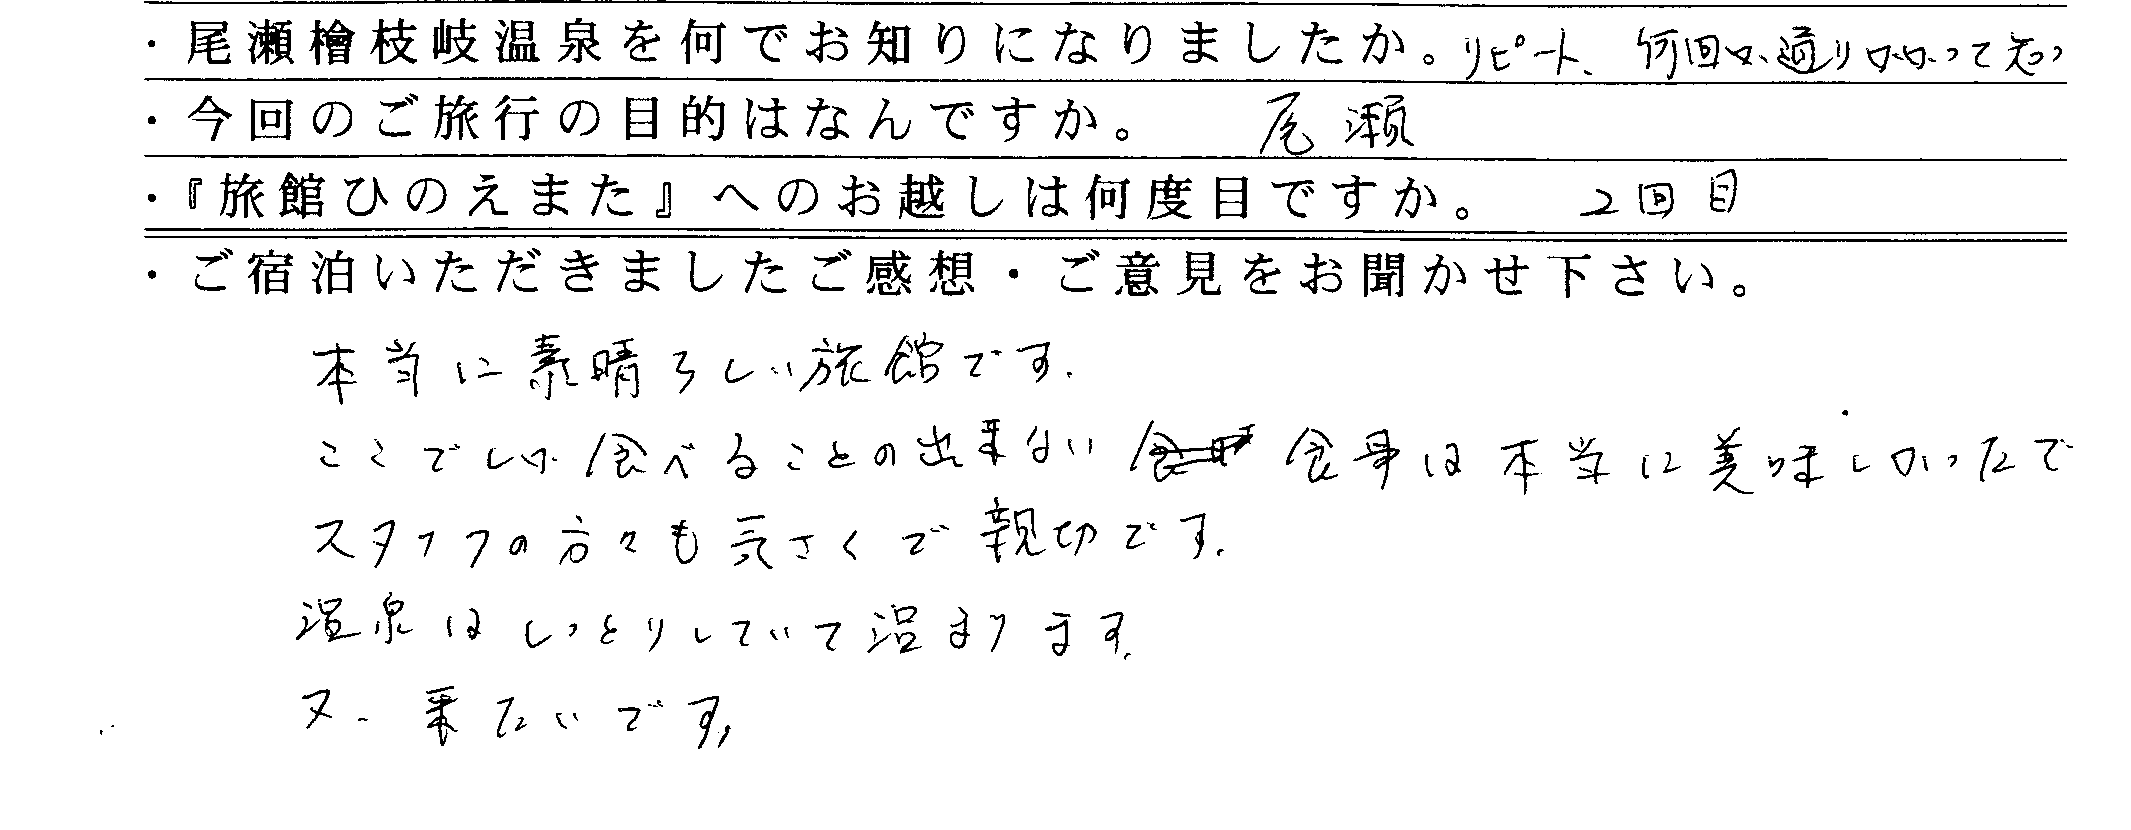 ・尾瀬檜枝岐温泉を何でお知りになりましたか。リピート、何回か通りかかって知っ
・今回のご旅行の目的はなんですか。 尾瀬
・『旅館ひのえまた』へのお越しは何度目ですか。 2回目
・ご宿泊いただきましたご感想・ご意見をお聞かせ下さい。
本当に素晴らしい旅館です.
ここでしか食べることの出来ない 食事は本当に美味しかったで
スタッフの方々も気さくで親切です.
温泉はしっとりしていて温まります.
又、来たいです,